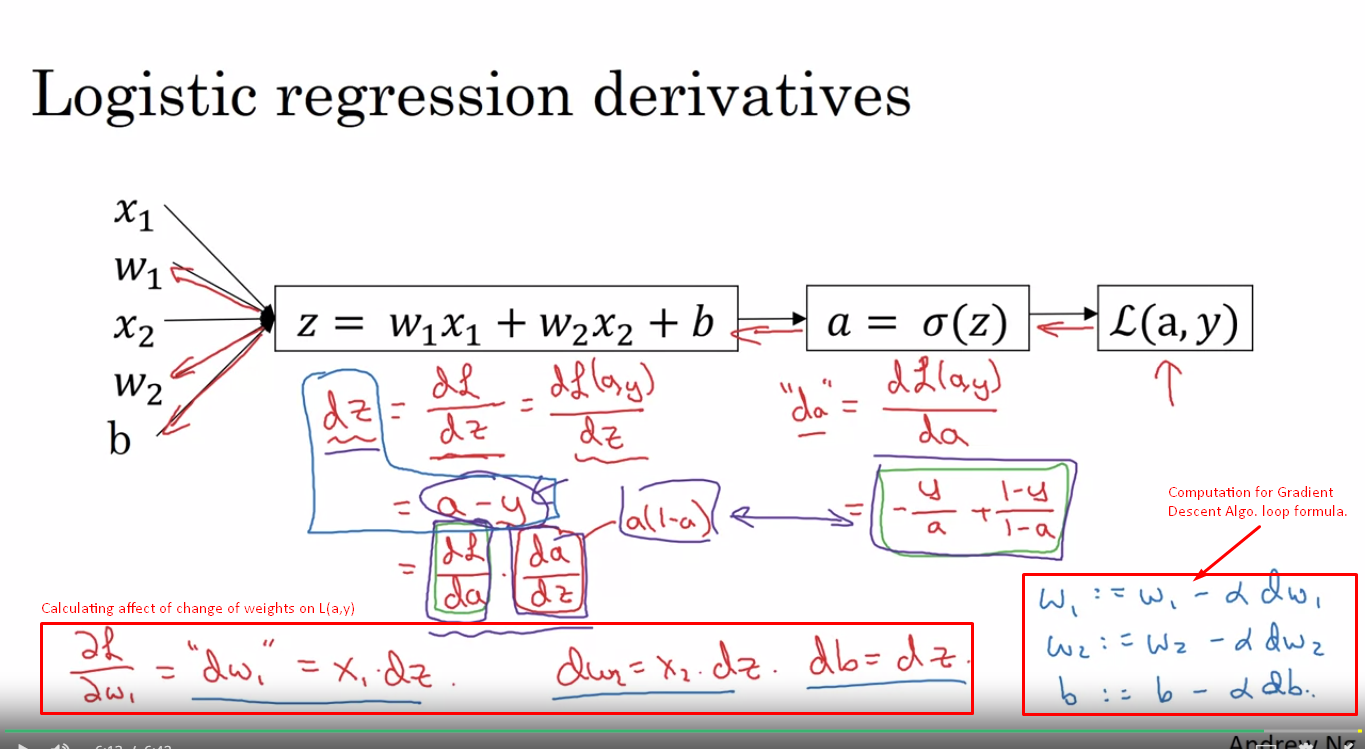 Logistic regression derivatives
x₁
w₁
x₂
w₂
b
z = w₁x₁ + w₂x₂ + b
a = σ(z)
ℒ(a, y)
dz = dℒ/dz = dℒ(a,y)/dz
"da" = dℒ(a,y)/da
= a - y
a(1-a)
= -y/a + (1-y)/(1-a)
= dℒ/da · da/dz
Computation for Gradient
Descent Algo. loop formula.
Calculating affect of change of weights on L(a,y)
∂ℒ/∂w₁ = "dw₁" = x₁·dz.
dw₂ = x₂·dz.
db = dz.
w₁ := w₁ - α dw₁
w₂ := w₂ - α dw₂
b := b - α db.
Andrew Ng